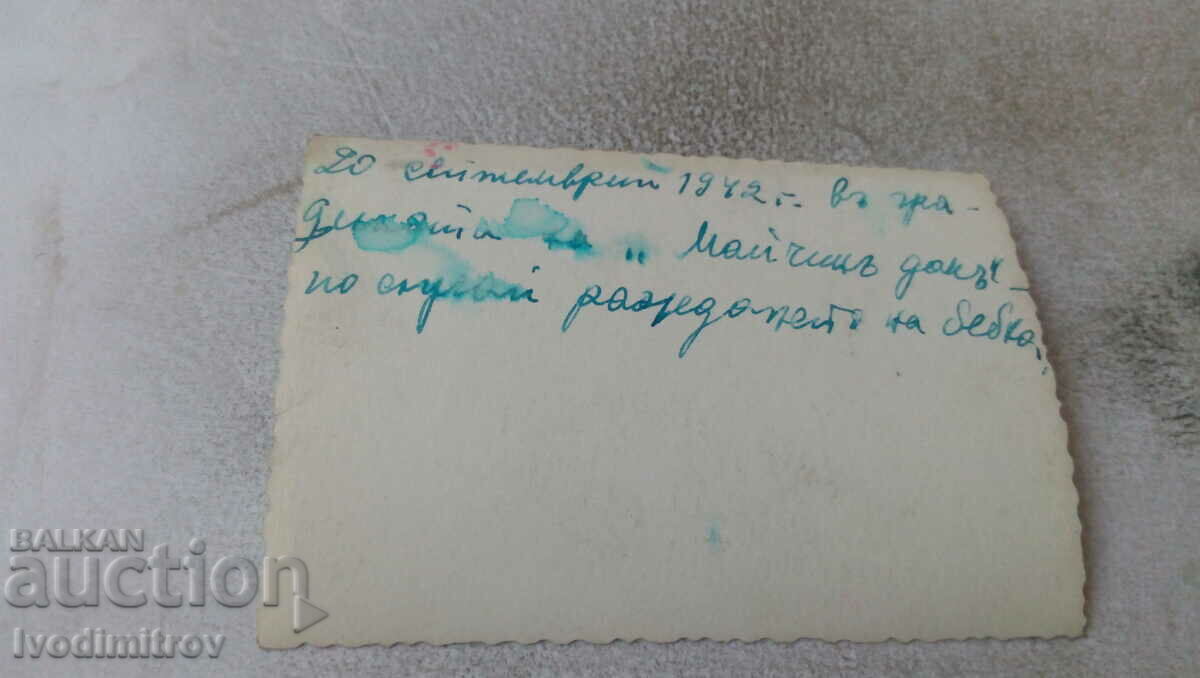 20 септемврий 1942 г. въ гра-
дината на „Майчинъ домъ"
по случай раждането на бебка.
BALKAN
auction
Ivodimitrov